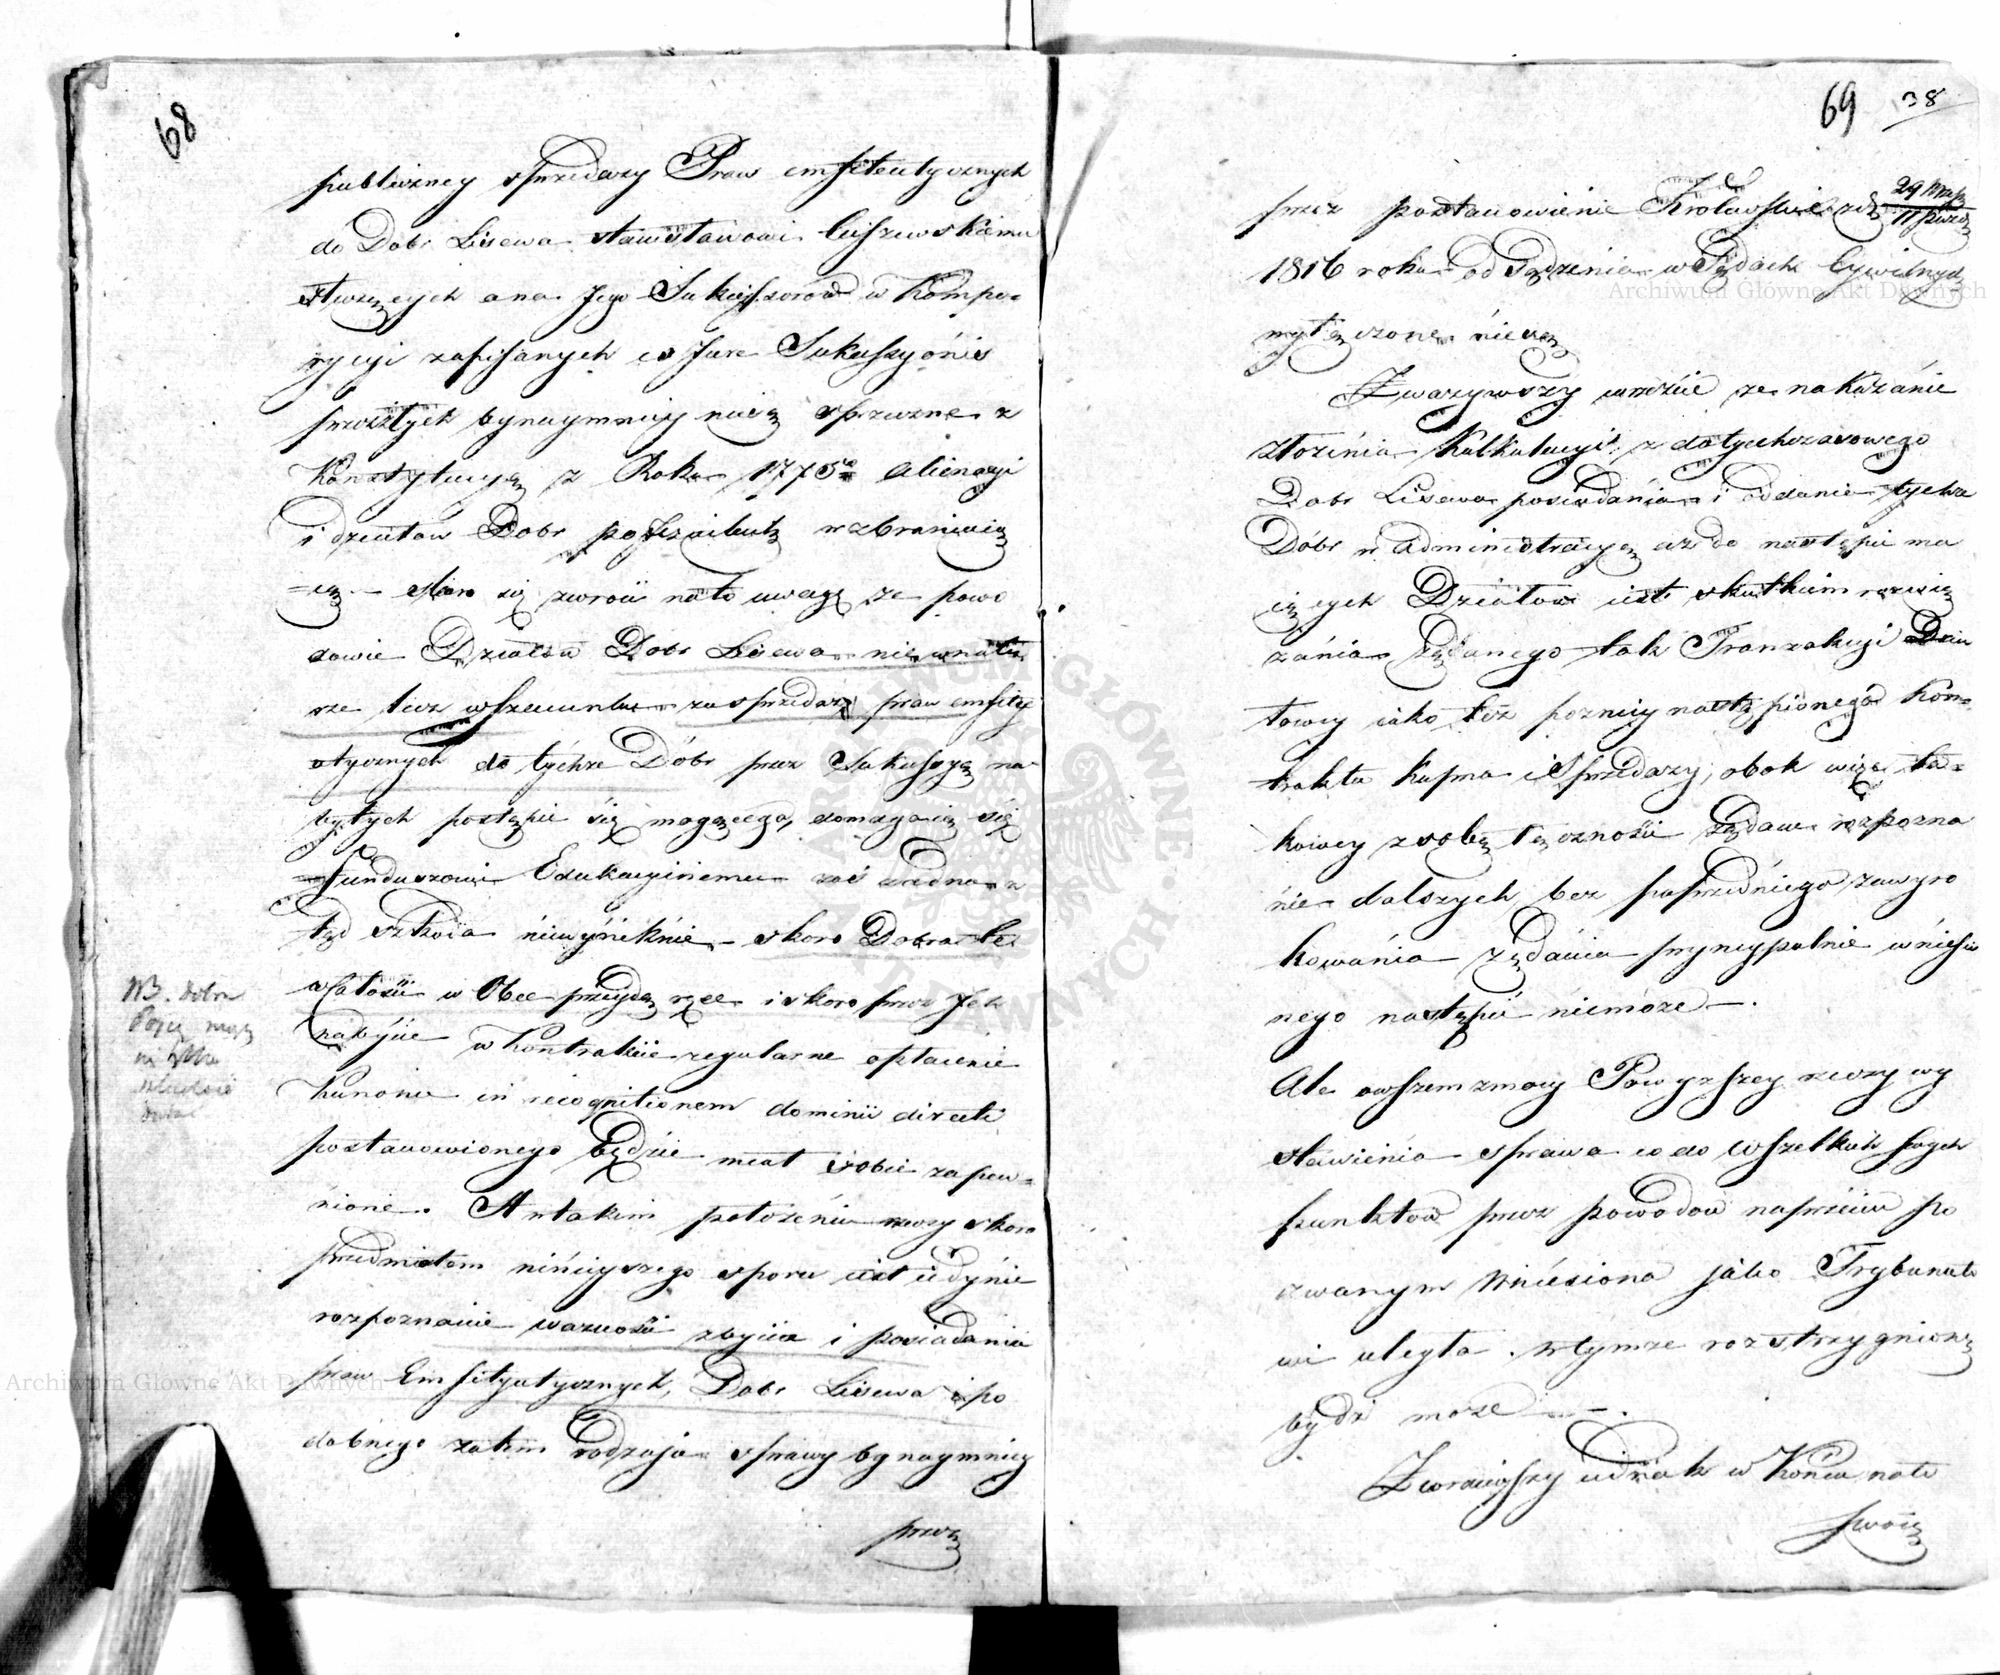 68
publiczney sprzedaży Praw emfiteutycznych
do Dobr Lisewa Stanisławowi Ciszewskiemu
służących a na Jego Sukcessorów w Kompo-
rycyi zapisanych in Jure Sukcessyonis
przeszłych bynaymniey nie są sprzeczne z
Konstytucyą z Roku 1775 alienacyi
i działów Dobr pojezuickich wzbraniaią
=cą. – skoro się zwróci na to uwagę że powo
dowie Działów Dobr Lisewa nie w natu
rze lecz w szacunku za sprzedaż praw emfite
utycznych do tychże Dóbr przez Sukcessyą na
bytych postąpić się mogącego, domagaią się
Funduszowi Edukacyinemu zaś żadna z
tąd szkoda niewyniknie – skoro Dobra te
w całości w Obce przeydą ręce i skoro przez Ich
nabycie w Kontrakcie regularne opłacenie
Kanonu in recognitionem dominii directi
postanowionego będzie miał sobie zapew=
nione. A w takim położeniu rzeczy skoro
przedmiotem niniejszego sporu iest iedynie
rozpoznanie ważności zbycia i posiadania
praw Emfityutycznych, Dobr Lisewa i po
dobnego zatem rodzaju sprawy bynaymniey
przez
NB. dobra
Pojez. mogą
ni tylko
w całości
69 38
przez postanowienie Królewskie z d. 29 Wrześ / 11 Paźdź
1816 roku od Sądzenia w Sądach Cywilnych
wyłączone nie są
Zważywszy wreście że nakazanie
złożenia Kalkulacyi z dotychczasowego
Dobr Lisewa posiadania i oddanie tychże
Dóbr w administracyą aż do nastąpić ma
iących Działów iest skutkiem rozwią
zania żądanego tak Tranzakcyi Dzia
łowey iako też pozniey nastąpionego Kon=
traktu Kupna i Sprzedaży, obok więc ta=
kowey z sobą łączności żądań rozpozna
nie dalszych bez poprzedniego zawyro
kowania żądania pryncypalnie wniesio
nego nastąpić niemoże –.
Ale owszem z mocy Powyższey rzeczy wy
stawienia sprawa co do wszelkich swych
punktów przez powodów naprzeciw po
zwanym wniesiona jako Trybunało
wi uległa w tymże rozstrzygnioną
bydź może –.
Zwróciwszy iednak w Końcu na to
swoią